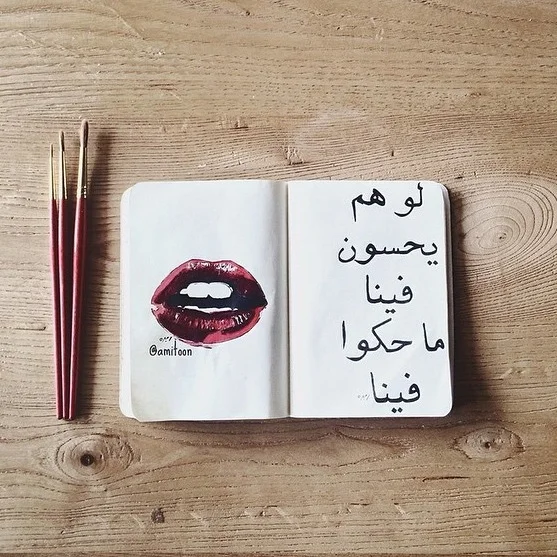 @amitoon
لو هم
يحسون
فينا
ما حكوا
فينا